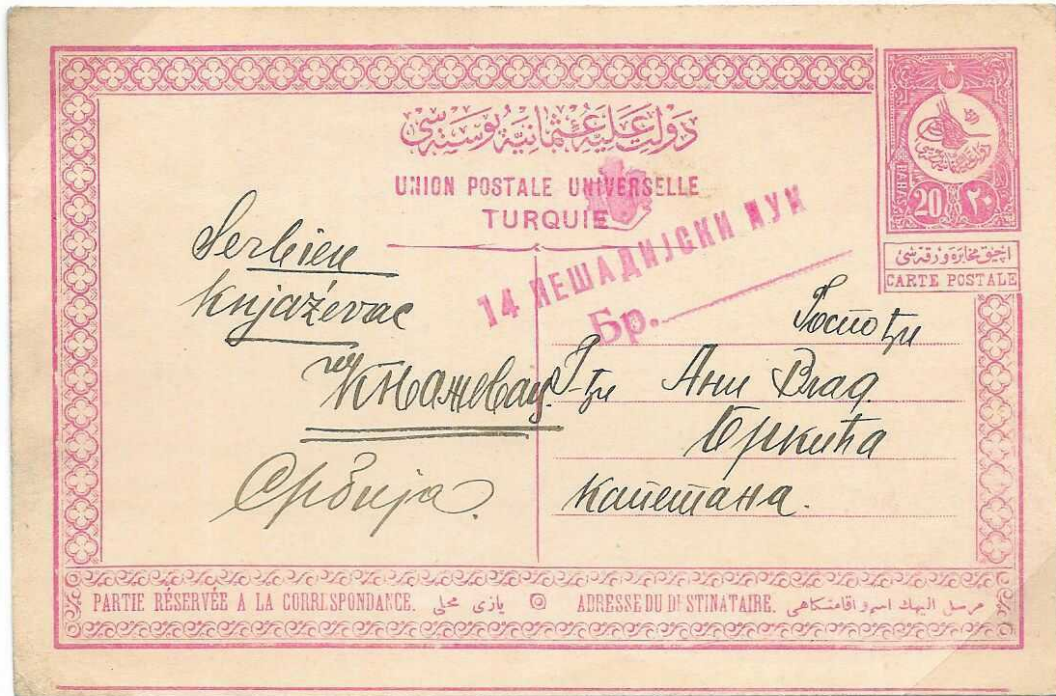 دولت علیه عثمانیه پوسته سی
UNION POSTALE UNIVERSELLE
TURQUIE
PARAS
20 ٢٠
آچیق مخابره ورقه سی
CARTE POSTALE
14 ПЕШАДИЈСКИ ПУК
Бр.
Serbien
Knjaževac
Књажевац
Србија
Госпођи
Г-ђи Ани Влад.
капетана.
PARTIE RÉSERVÉE A LA CORRESPONDANCE. یازی محلی
ADRESSE DU DESTINATAIRE.